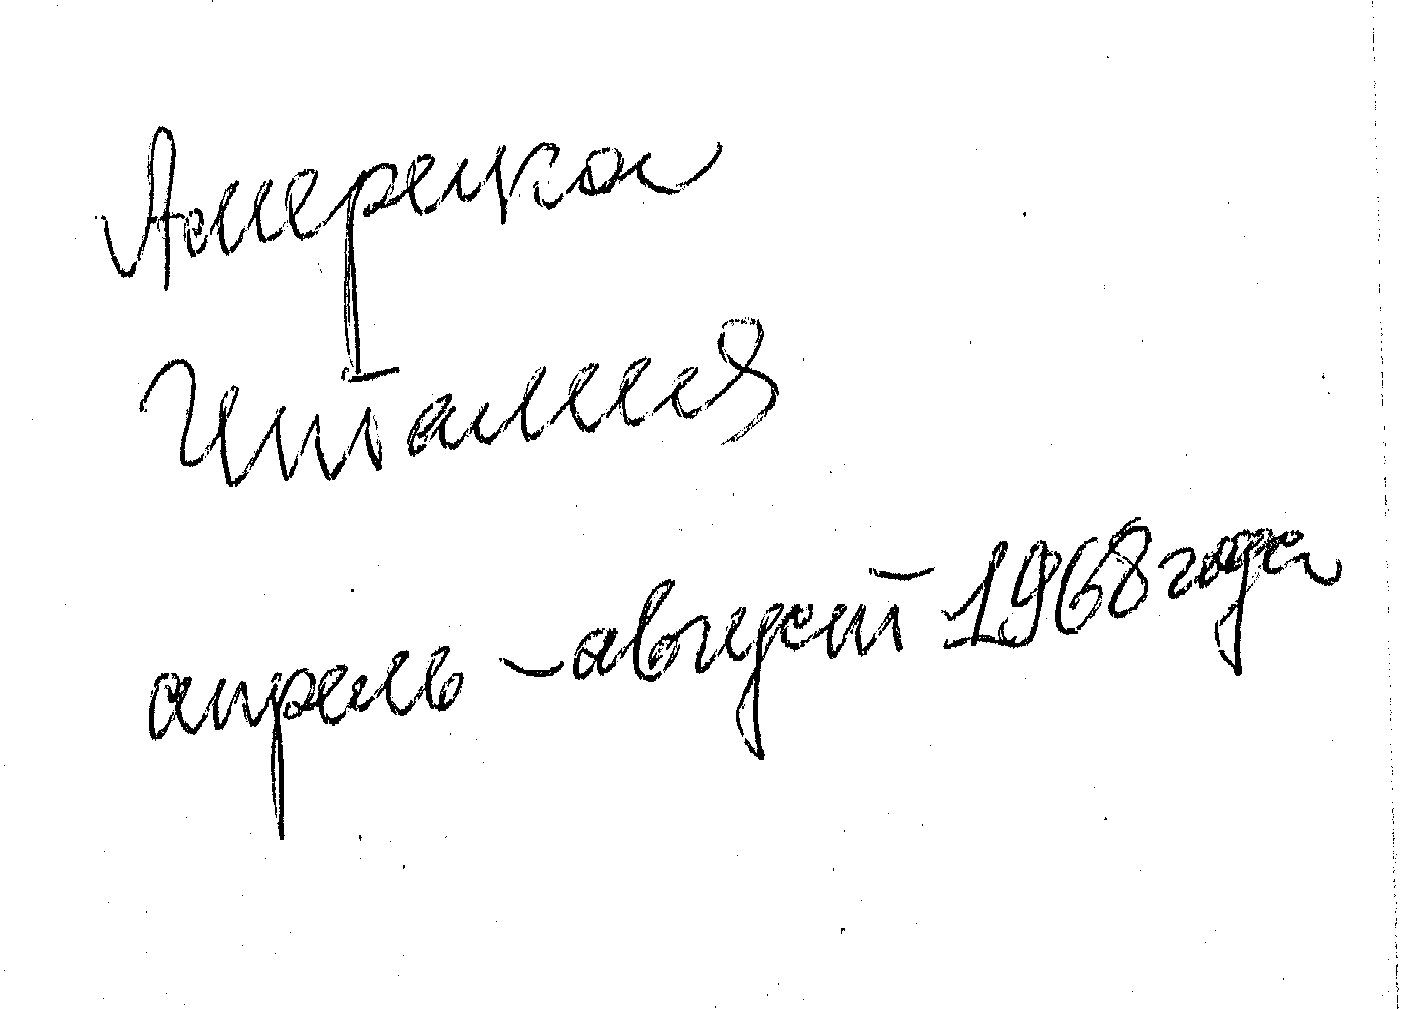 Америка
Италия
апрель - август 1968 года